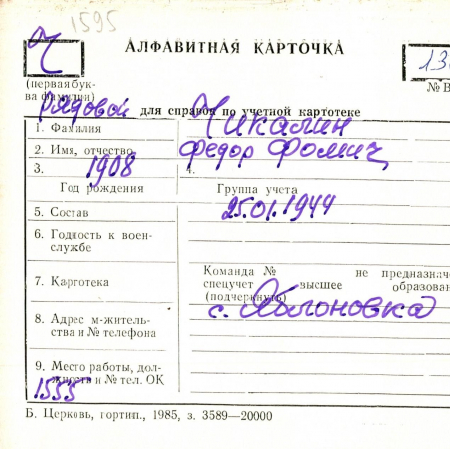 1595
Ч
АЛФАВИТНАЯ КАРТОЧКА
13
(первая бук-
ва фамилии)
№ В
рядовой
для справок по учетной картотеке
1. Фамилия
Чикалин
2. Имя, отчество
Федор Фомич
3.
1908
4.
Год рождения
Группа учета
5. Состав
25.01.1944
6. Годность к воен-
службе
7. Картотека
Команда № не предназначе
спецучет высшее образован
(подчеркнуть)
с. Яблоновка
8. Адрес м-житель-
ства и № телефона
9. Место работы, дол-
жность и № тел. ОК
1555
Б. Церковь, гортип., 1985, з. 3589—20000